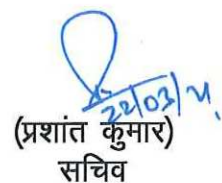 22/03/21
(प्रशांत कुमार)
सचिव